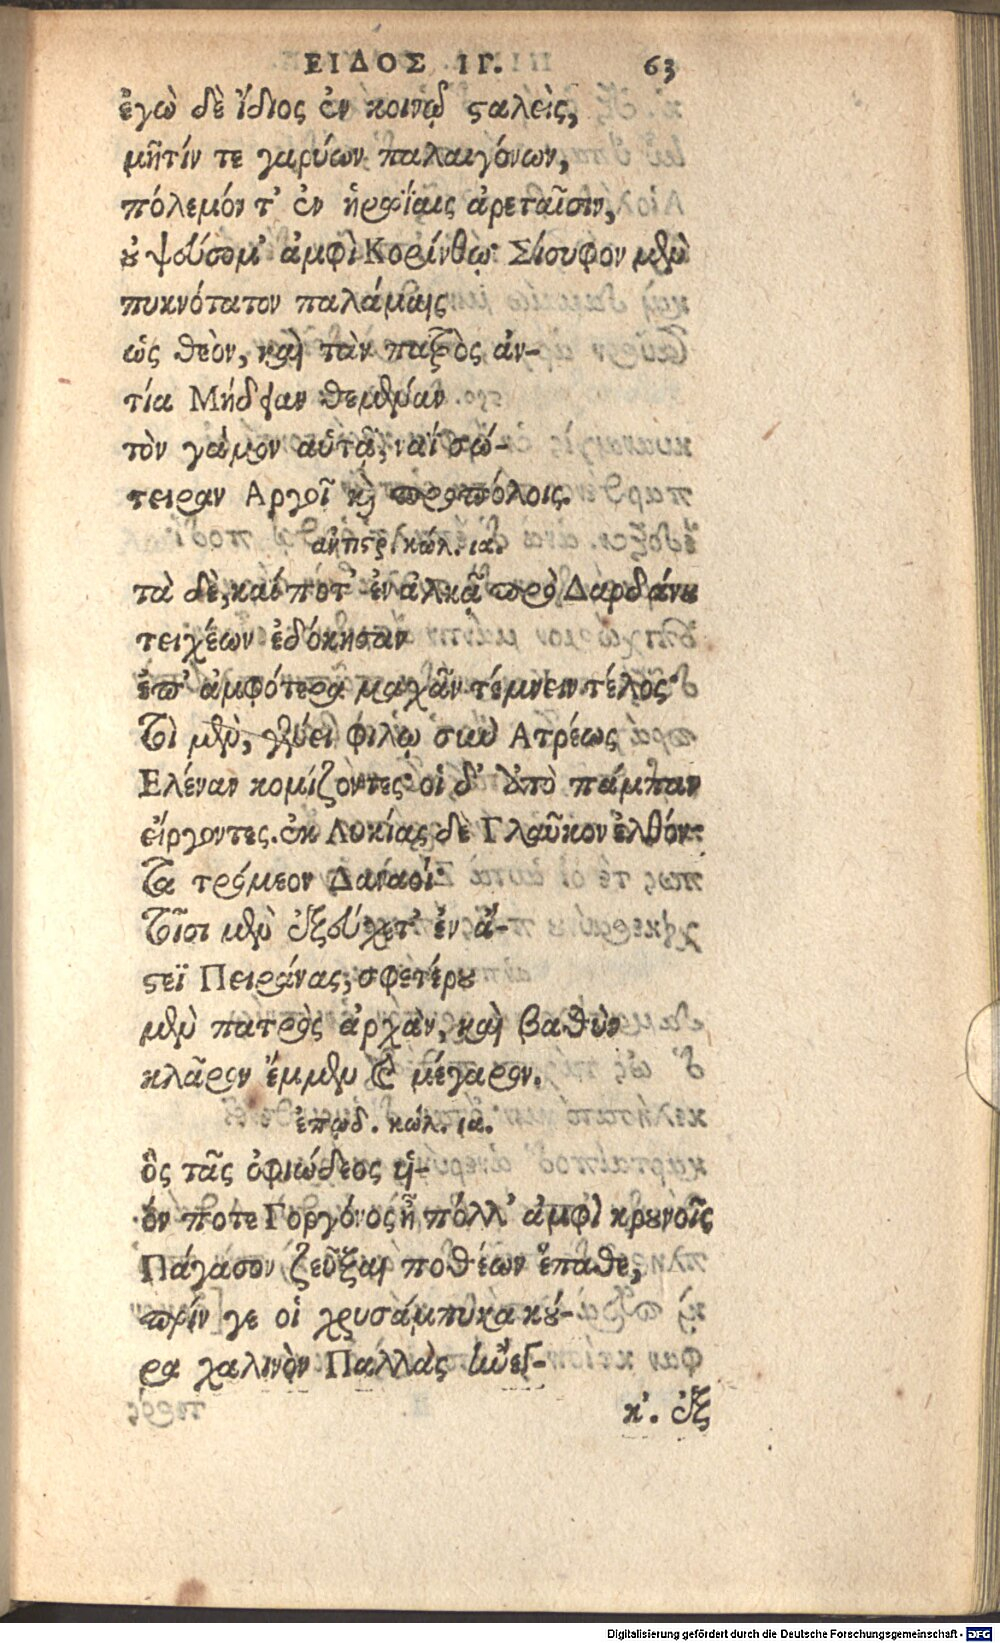 ΕΙΔΟΣ ΙΓ. 63
ἐγὼ δὲ ἴδιος ἐν κοινῷ ϛαλεὶς,
μῆτίν τε γαρύων παλαιγόνων,
πόλεμόν τ' ἐν ἡρωΐαις ἀρεταῖσιν,
ȣ ψεύσομ' ἀμφὶ Κορίνθῳ· Σίσυφον μὲν
πυκνότατον παλάμαις
ὡς θεὸν, καὶ τὰν πατρὸς ἀν-
τία Μήδειαν θεμέναν
τὸν γάμον αὐτᾷ, ναῒ σώ-
τειραν Αργοῖ καὶ προπόλοις.
ἀντιϛρ. κώλ. ια.
τὰ δὲ, καί ποτ' ἐν ἀλκᾷ πρὸ Δαρδάνȣ
τειχέων ἐδόκησαν
ἐπ' ἀμφότερα μαχᾶν τέμνειν τέλος·
Τοὶ μὲν, γένει φίλῳ σὺν Ατρέως
Ελέναν κομίζοντες· οἱ δ' ἀπὸ πάμπαν
εἴργοντες. ἐκ Λυκίας δὲ Γλαῦκον ἐλθόν-
τα τρόμεον Δαναοί·
Τοῖσι μὲν ἐξεύχετ' ἐν ἄ-
ϛεϊ Πειράνας, σφετέρȣ
μὲν πατρὸς ἀρχὰν, καὶ βαθὺν
κλᾶρον ἔμμεν καὶ μέγαρον.
ἐπῳδ. κώλ. ια.
ὃς τᾶς ὀφιώδεος υἱ-
όν ποτε Γοργόνος ἦ πόλλ' ἀμφὶ κρȣνοῖς
Πάγασον ζεῦξαι ποθέων ἔπαθε,
πρίν γε οἱ χρυσάμπυκα κȣ́-
ρα χαλινὸν Παλλὰς ἤνεγ-
κ'. ἐξ
Digitalisierung gefördert durch die Deutsche Forschungsgemeinschaft - DFG